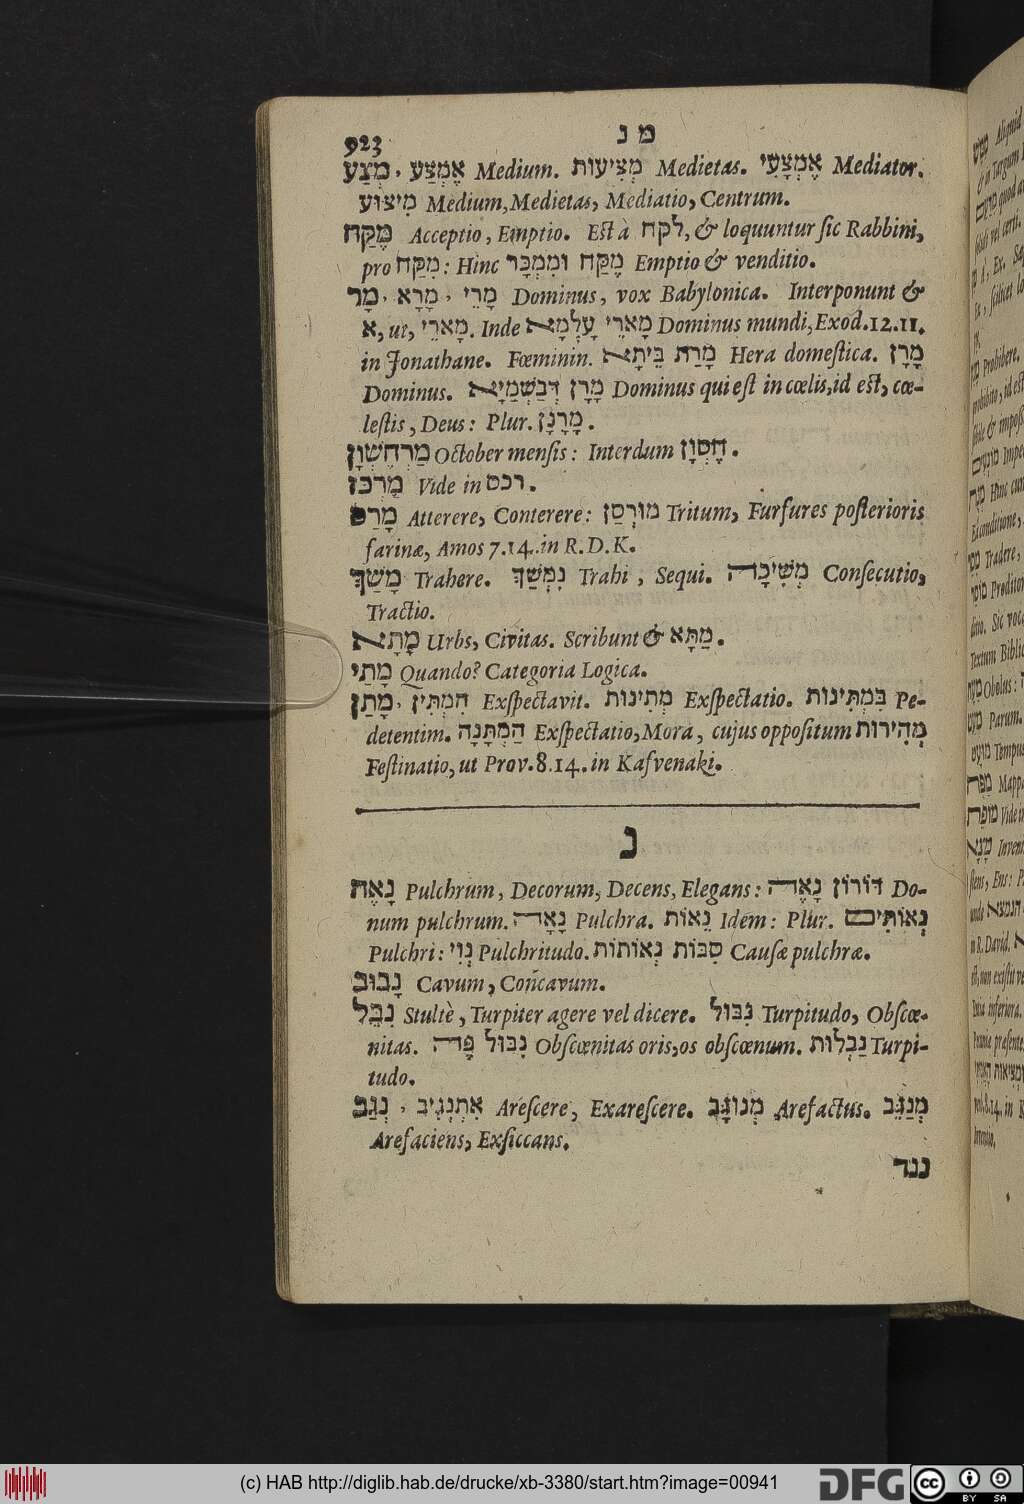 923 מ נ
מְצַע, אֶמְצַע Medium. מְצִיעוּת Medietas. אֶמְצָעִי Mediator.
מִיצוּע Medium, Medietas, Mediatio, Centrum.
מֶקַּח Acceptio, Emptio. Est à לקח, & loquuntur sic Rabbini,
pro מִקַּח: Hinc מֶקַּח וּמִמְכָּר Emptio & venditio.
מָר, מָרָא, מָרֵי Dominus, vox Babylonica. Interponunt &
א, ut, מָארֵי. Inde מָארֵי עָלְמָא Dominus mundi, Exod. 12.11.
in Jonathane. Fœminin. מָרַת בֵּיתָא Hera domestica. מָרָן
Dominus. מָרָן דְּבַשְׁמַיָא Dominus qui est in cœlis, id est, cœ-
lestis, Deus: Plur. מָרָנָן.
מַרְחֶשְׁוָן October mensis: Interdum חֶסְוָן.
מֶרְכּז Vide in רכס.
מָרַס Atterere, Conterere: מוּרְסַן Tritum, Furfures posterioris
farinæ, Amos 7.14. in R.D.K.
מָשַׁךְ Trahere. נִמְשַׁךְ Trahi, Sequi. מְשִׁיכָה Consecutio,
Tractio.
מָתָא Urbs, Civitas. Scribunt & מַתָּא.
מָתַי Quando? Categoria Logica.
מָתַן, המְתִּין Exspectavit. מְתִינוּת Exspectatio. בִּמְתִּינוֹת Pe-
detentim. הַמְתָּנָה Exspectatio, Mora, cujus oppositum מְהִירוּת
Festinatio, ut Prov. 8.14. in Kasvenaki.
נ
נָאֶה Pulchrum, Decorum, Decens, Elegans: דּוֹרוֹן נָאֶה Do-
num pulchrum. נָאָה Pulchra. נֵאוֹת Idem: Plur. נְאוֹתִּים
Pulchri: נְוִי Pulchritudo. סִבּוֹת נְאוֹתוֹת Causæ pulchræ.
נָבוּב Cavum, Concavum.
נִבֵּל Stultè, Turpiter agere vel dicere. נִבּוּל Turpitudo, Obscœ-
nitas. נִבּוּל פֶּה Obscœnitas oris, os obscœnum. נַבְלוּת Turpi-
tudo.
נְגַב, אִתְנְגִיב Arescere, Exarescere. מְנוּגָּב Arefactus. מְנַגֵּב
Arefaciens, Exsiccans.
נגד
(c) HAB http://diglib.hab.de/drucke/xb-3380/start.htm?image=00941 DFG cc BY SA